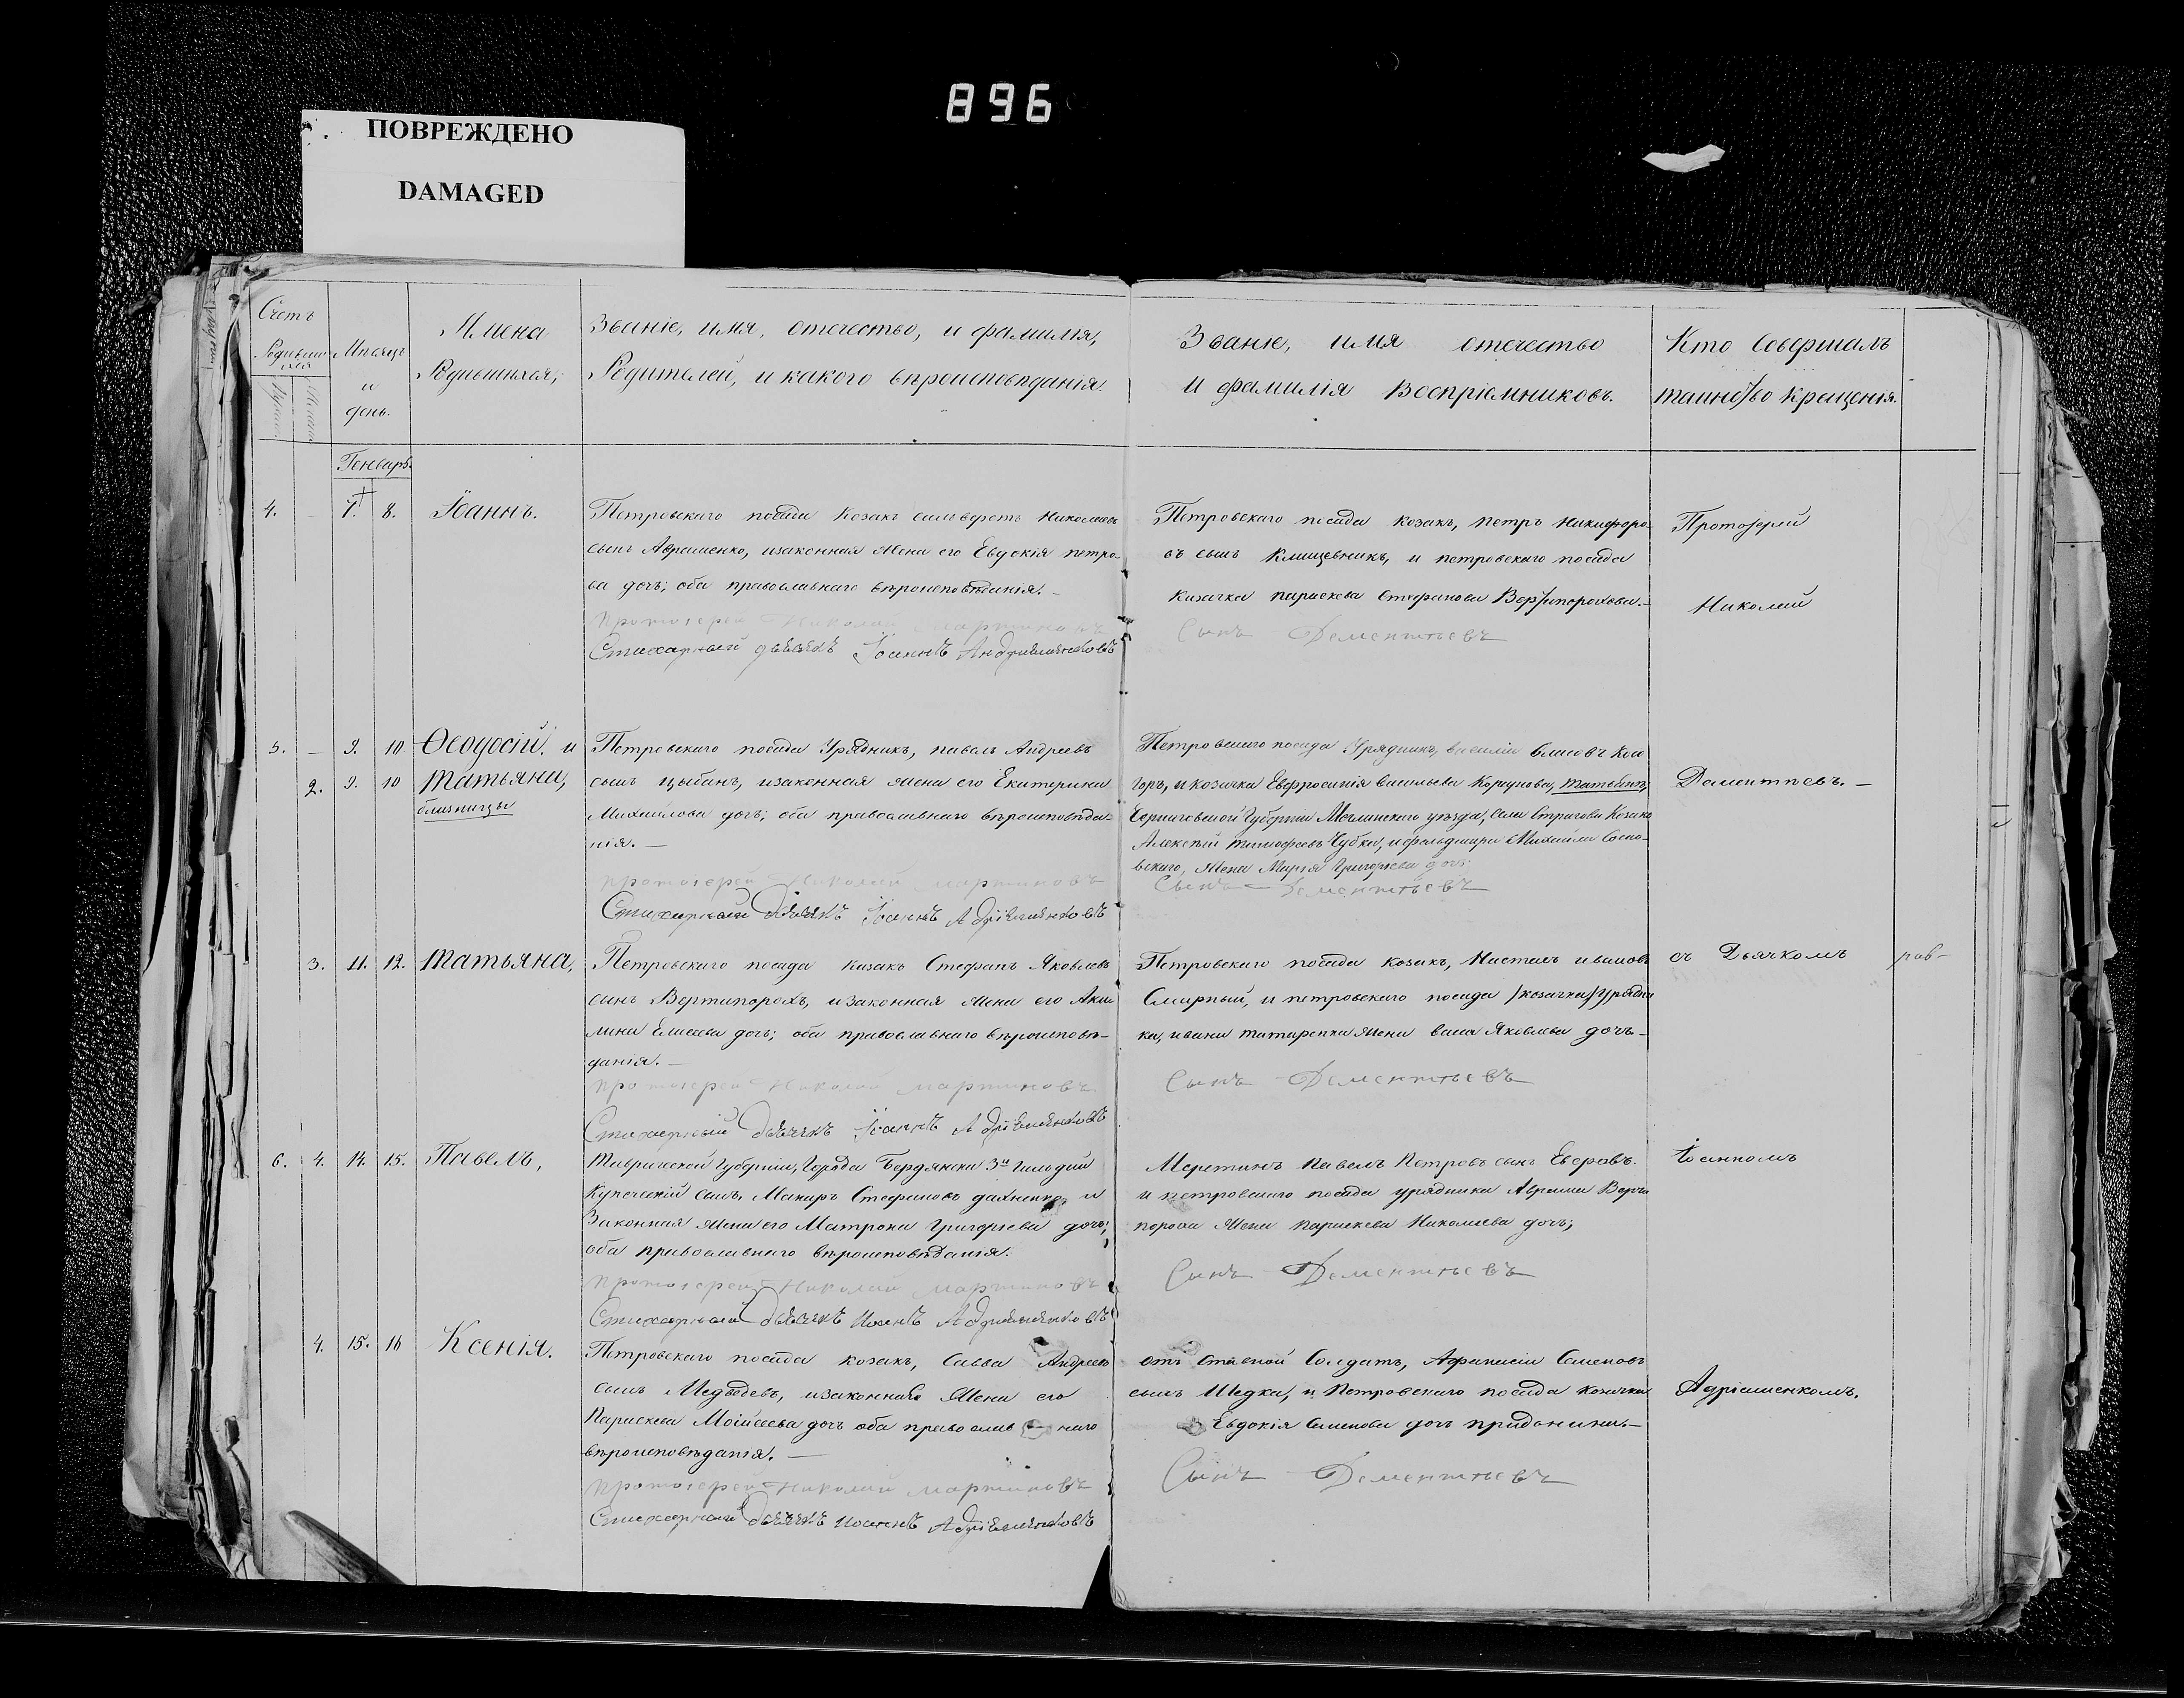 896
ПОВРЕЖДЕНО
DAMAGED
Счетъ
Родивших
ся
Мѣсяцъ
и
день.
Имена
Родившихся,
Званіе, имя, отечество, и фамилія,
Родителей, и какого вѣроисповѣданія.
Званіе, имя отечество
и фамилія Воспріемниковъ.
Кто совершалъ
таинство крещенія.
Генварь.
4. - 7. 8. Іоаннъ.
Петровскаго посада козакъ сильверстъ Николаевъ
сынъ Авраменко, изаконная жена его Евдокія петро-
ва дочь; оба православнаго вѣроисповѣданія. -
Протоіерей Николай Мартиновъ
Стихарный дьячекъ Іоаннъ Андріяшенковъ
Петровскаго посада козакъ, петръ Никифоро-
въ сынъ Клищевникъ, и петровскаго посада
Казачка параскева Стефанова Вертипорохова. -
Сынъ Дементьевъ
Протоіерей
Николай
5. - 9. 10 Ѳеодосій. и
2. 9. 10 Татьяна,
близницы
Петровскаго посада Урядникъ, павелъ Андреевъ
сынъ цыбанъ, изаконная жена его Екатерина
Михайлова дочь; оба православнаго вѣроисповѣда-
нія. -
Протоіерей Николай Мартиновъ
Стихарный дьячекъ Іоаннъ Адріяшенковъ
Петровскаго посада Урядникъ, василій
и козачка Евфросинія васильева Корнунова,
Черниговской Губерніи Мглинскаго уѣзда, села Стригова Козакъ
Алексѣй тимофеевъ Чубка, и фельдшера Михаила Сосно-
вскаго, жена Марія Григорьева дочь.
Сынъ Дементьевъ
Дементьевъ. -
3. 11. 12. Татьяна,
Петровскаго посада казакъ Стефанъ Яковлевъ
сынъ Вертипорохъ, изаконная жена его Аку
лина Елисеева дочь; оба православнаго вѣроисповѣ-
данія. -
Протоіерей Николай Мартиновъ
Стихарный дьячекъ Іоаннъ Адріяшенковъ
Петровскаго посада козакъ, ивановъ
Смирный, и петровскаго посада /козачка/ Урядни
ка, ивана татаренка жена васса Яковлева дочь -
Сынъ Дементьевъ
съ Дьячкомъ
6. 4. 14. 15. Павелъ,
Таврической Губерніи, Города Бердянска 3й Гильдіи
Купеческій сынъ, Макаръ Стефановъ дахненко, и
Законная жена его Матрона Григорьева дочь;
оба православнаго вѣроисповѣданія.
Протоіерей Николай Мартиновъ
Стихарный дьячекъ Иоаннъ Адріяшенковъ
павелъ Петровъ сынъ
и петровскаго посада урядника Авраама Верти
пороха жена параскева Николаева дочь;
Сынъ Дементьевъ
Іоанномъ
4. 15. 16 Ксенія.
Петровскаго посада козакъ, Савва Андреевъ
сынъ Медведевъ, изаконная жена его
Параскева Моисеева дочь оба православ наго
вѣроисповѣданія. -
Протоіерей Николай Мартиновъ
Стихарный дьячекъ Иоаннъ Адріяшенковъ
отъ ставной Солдатъ, Афанасій Семеновъ
сынъ Шедка, и Петровскаго посада козачка
Евдокія Семенова дочь придонина. -
Сынъ Дементьевъ
Адріяшенкомъ.